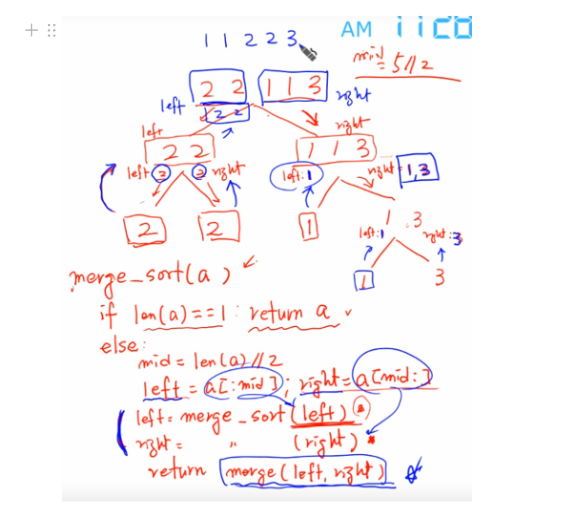 AM 11 28
1 1 2 2 3
mid = 5//2
2 2 1 1 3
left 2 2 right
left right
2 2 1 1 3
left 2 2 right left: 1 right 1,3
2 2 1 1 3
left: 1 right: 3
1 3
merge_sort(a)
if len(a)==1: return a
else:
mid = len(a)//2
left = a[:mid]; right = a[mid:]
left = merge_sort(left)
right = " (right)
return merge(left, right)